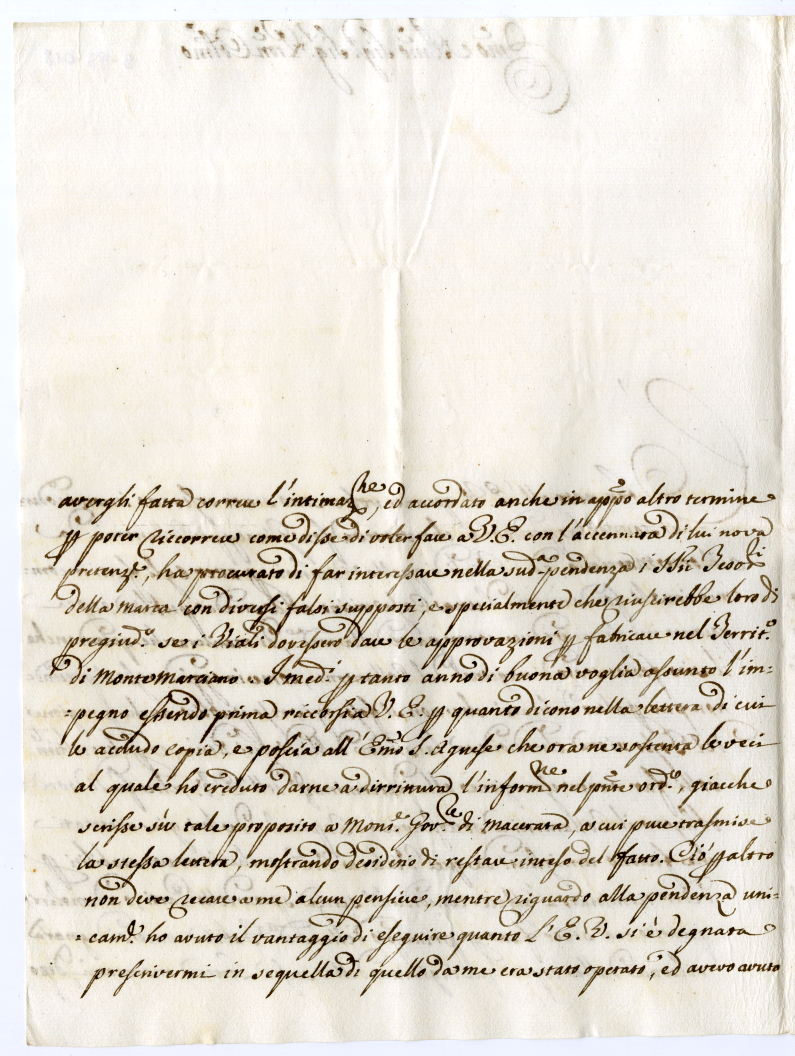 avergli fatta correre l'intimaz.ne, ed accordato anche in app.o altro termine
p poter riccorrere come disse di voler fare a V.E. con l'accennata di lui nova
pretenz.e, ha procurato di far interessare nella sud.a pendenza i SS.ri Tesori
della Marca con diversi falsi supposti, e specialmente che riuscirebbe loro di
pregiud.o se i Viali dovessero dare le approvazioni p fabricare nel Territ.o
di Monte Marciano. I med.i p tanto anno di buona voglia assunto l'im-
-pegno essendo prima riccorsi a V.E. p quanto dicono nella lettera di cui
le accludo copia, e poscia all'E.mo S. Agnese che ora ne sostenta le veci
al quale ho creduto darne a dirrittura l'inform.ne nel pnte ord.o, giacche
scrisse sù tale proposito a Mons.r Gov.re di Macerata, a cui pure trasmise
la stessa lettera, mostrando desiderio di restare inteso del fatto. Ciò p altro
non deve recare a me alcun pensiere, mentre riguardo alla pendenza uni-
-cam.e ho avuto il vantaggio di eseguire quanto L'E.V. si è degnata
prescrivermi in sequella di quello da me era stato operato, ed avevo avuto